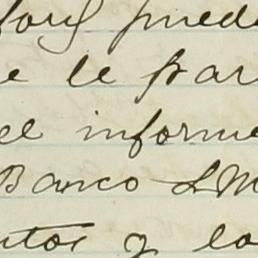 puede
e le par
el informe
Banco L M
ntos y lo